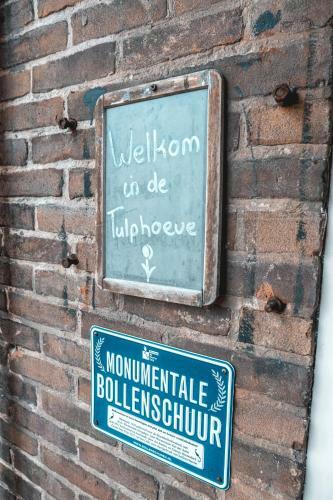 Welkom
in de
Tulphoeve
MONUMENTALE
BOLLENSCHUUR